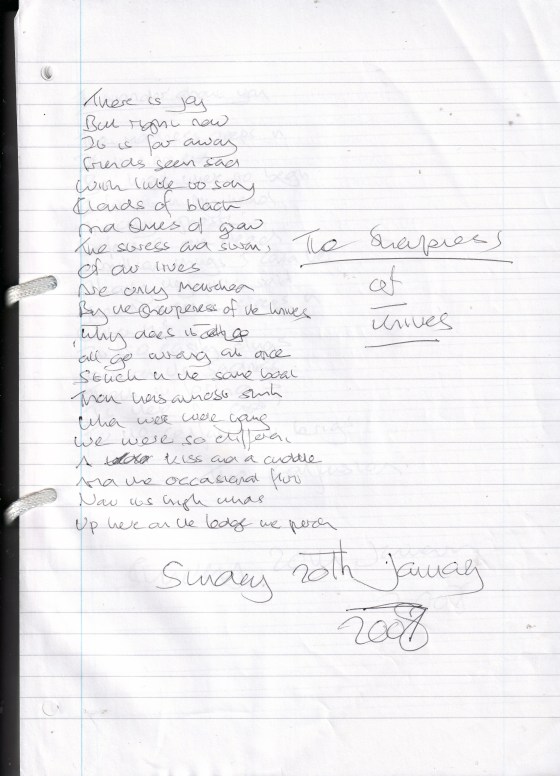 There is joy
But right now
It is far away
Friends seem sad
With little to say
Clouds of black
And Ones of grey
The stress and strain,
Of our lives
Are only matched
By the Sharpness of the knives
Why does it
all go wrong at once
Stuck in the same boat
That has almost sunk
When we were young
We were so different
A kiss and a cuddle
And the occasional
Now its high winds
Up here on the ledge we perch
The Sharpness
of
Knives
Sunday 20th January
2008